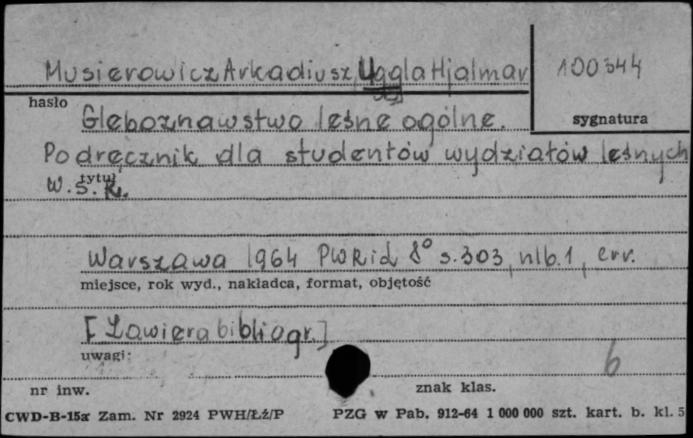 Musierowicz Arkadiusz, Uggla Hjalmar
100344
hasło
sygnatura
Gleboznawstwo leśne ogólne.
Podręcznik dla studentów wydziałów leśnych
W.S.R.
tytuł
Warszawa 1964 PWRiL 8° s.303, nlb.1, err.
miejsce, rok wyd., nakładca, format, objętość
[Zawiera bibliogr.]
uwagi:
6
nr inw.
znak klas.
CWD-B-15a Zam. Nr 2924 PWH/Łź/P PZG w Pab. 912-64 1 000 000 szt. kart. b. kl. 5